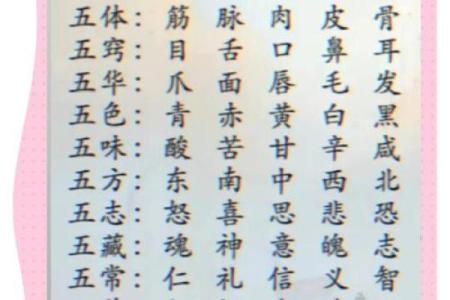 五体：筋 脉 肉 皮 骨
五窍：目 舌 口 鼻 耳
五华：爪 面 唇 毛 发
五色：青 赤 黄 白 黑
五味：酸 苦 甘 辛 咸
五方：东 南 中 西 北
五志：怒 喜 思 悲 恐
五藏：魂 神 意 魄 志
五常：仁 礼 信 义 智